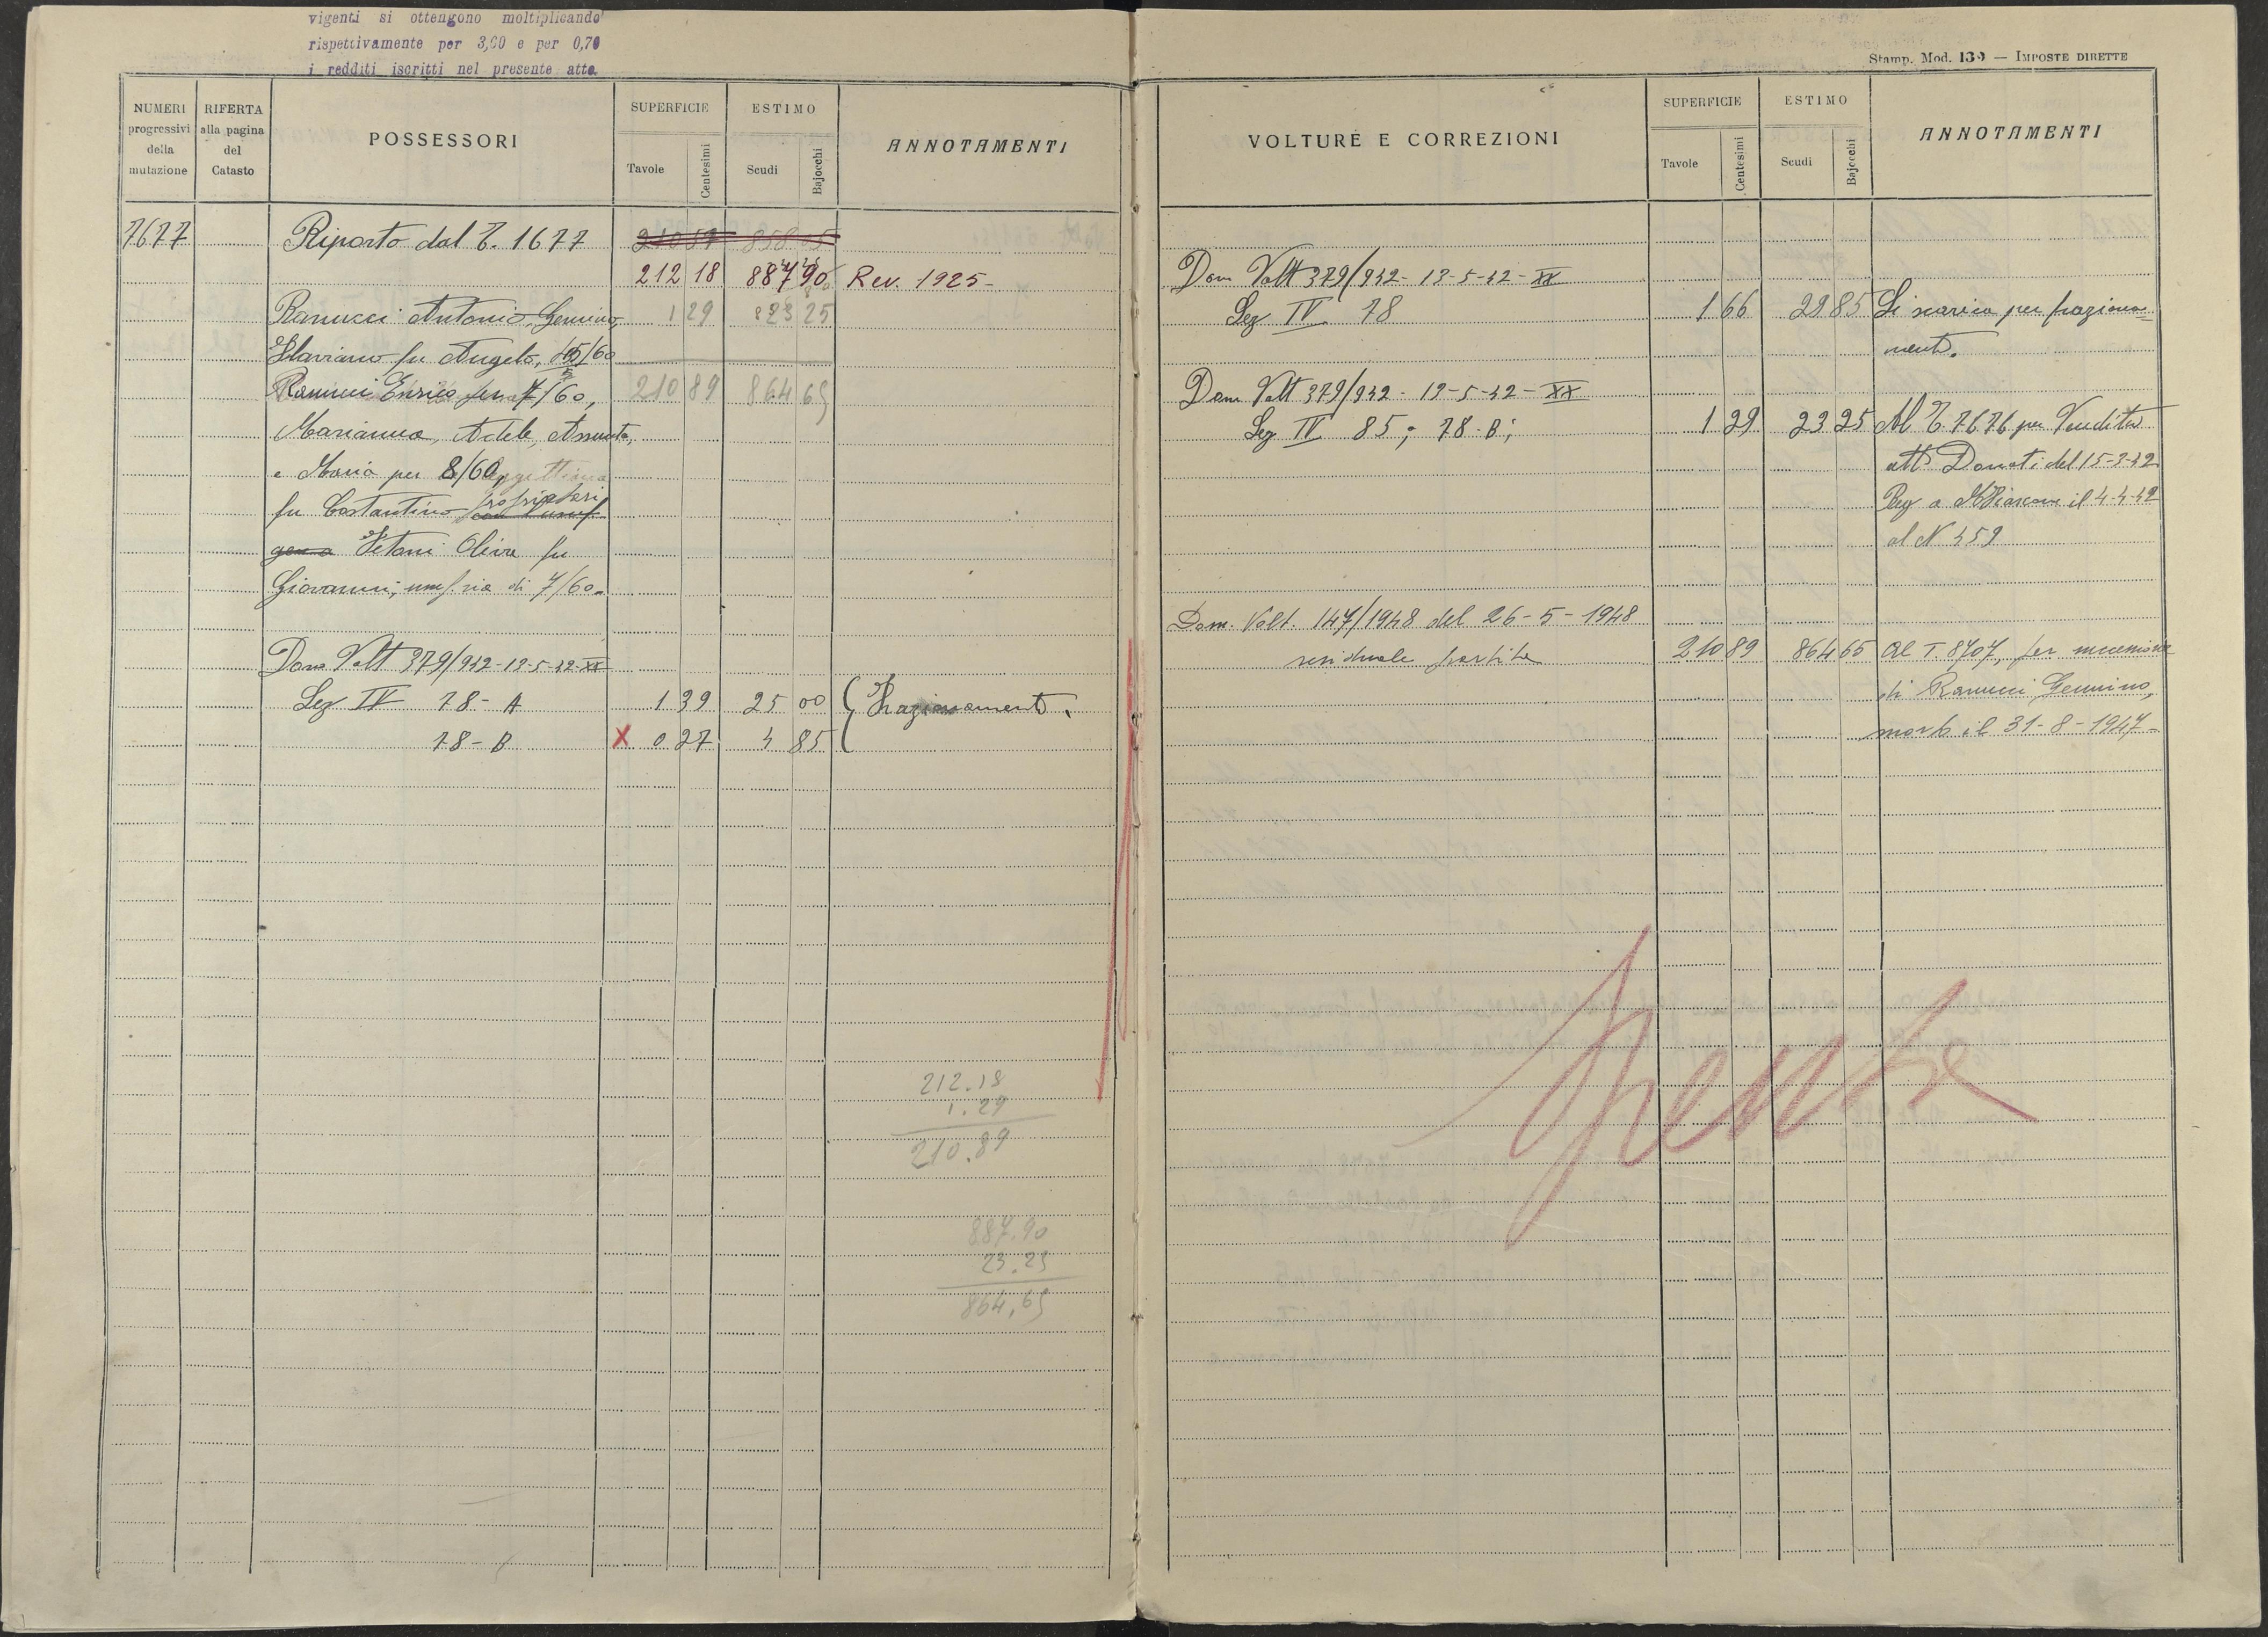 vigenti si ottengono moltiplicando
rispettivamente per 3,60 e per 0,70
i redditi iscritti nel presente atto.
NUMERI progressivi della mutazione
RIFERTA alla pagina del Catasto
POSSESSORI
SUPERFICIE
Tavole
Centesimi
ESTIMO
Scudi
Bajocchi
ANNOTAMENTI
7677 Riporto dal T. 1677 210 57 858 05
212 18 887 90 Rev. 1925-
Ranucci Antonio, Gemino, 1 29 23 25
Flaviano fu Angelo, /60
Ranucci Enrico per 7/60, 210 89 864 65
Marianna, Adele, Assunta,
e Maria per 8/60
fu Costantino proprietari
Fetoni Oliva fu
Giovanni, usuf.ria di 7/60-
Dom Volt 379/942-12-5-42-XX
Sez IV 78-A 1 39 25 00 Frazionamento.
78-B X 0 27 4 85
212.18
1.29
210.89
887.90
23.25
864,65
Stamp. Mod. 130 — IMPOSTE DIRETTE
VOLTURE E CORREZIONI
SUPERFICIE
Tavole
Centesimi
ESTIMO
Scudi
Bajocchi
ANNOTAMENTI
Dom Volt 379/942- 12-5-42-XX
Sez IV 78 1 66 29 85 Si scarica per fraziona=
mento.
Dom Volt 379/942- 12-5-42-XX
Sez IV 85; 78-B; 1 29 23 25 Al T. 7676 per Vendita
atto Donati del 15-3-42
Reg a il 4-4-42
al N 459
Dom. Volt. 147/1948 del 26-5-1948
residuale partita 210 89 864 65 Al T. 8707, per successione
di Ranucci Gemino,
morto il 31-8-1947-
Spenta